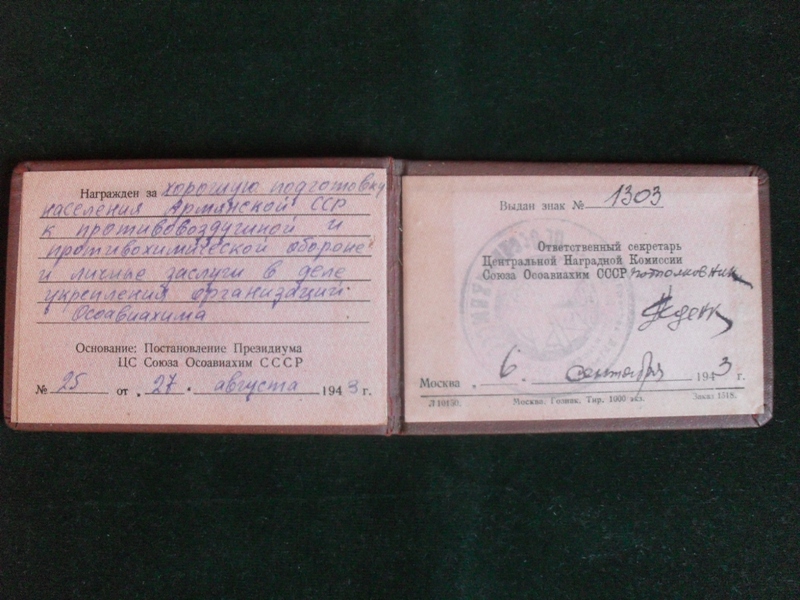 Награжден за хорошую подготовку
населения Армянской ССР
к противовоздушной и
противохимической обороне
и личные заслуги в деле
укрепления организаций
Осоавиахима
Основание: Постановление Президиума
ЦС Союза Осоавиахим СССР
№ 25 от „27" августа 1943 г.
Выдан знак № 1303
Ответственный секретарь
Центральной Наградной Комиссии
Союза Осоавиахим СССР
Москва „6" сентября 1943 г.
Л10150. Москва. Гознак. Тир. 1000 экз. Заказ 1518.